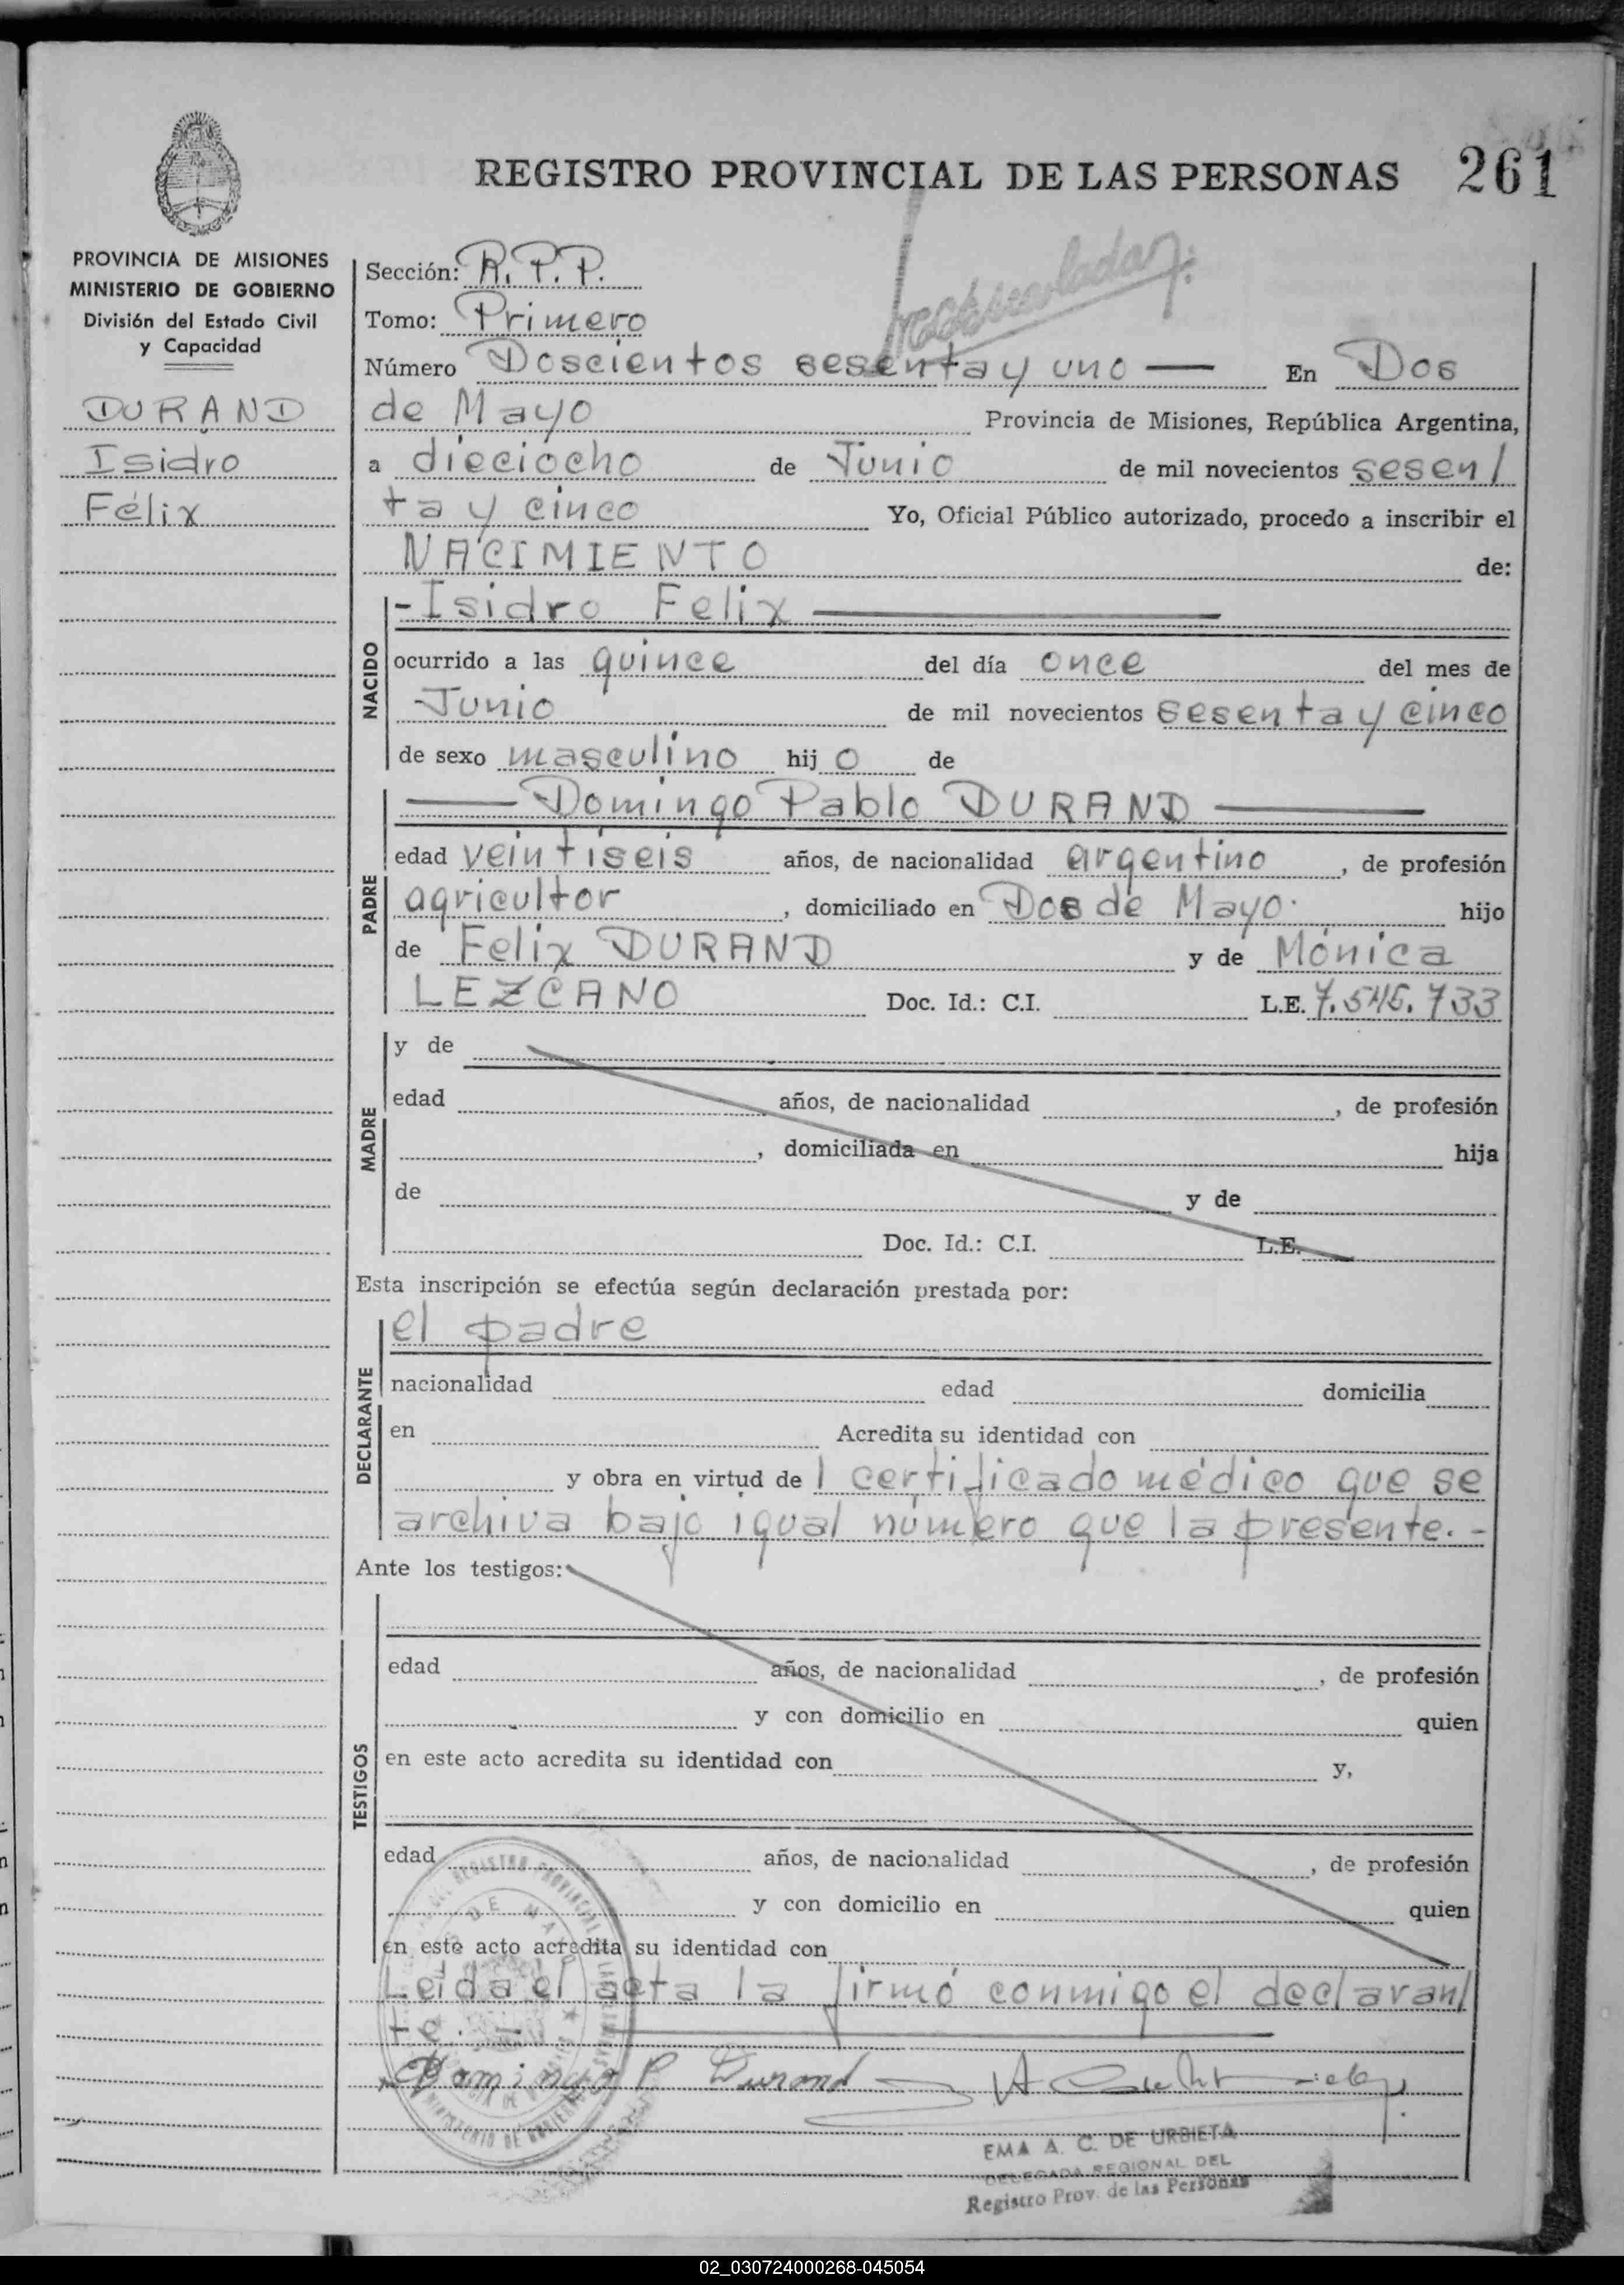 REGISTRO PROVINCIAL DE LAS PERSONAS 261
PROVINCIA DE MISIONES
MINISTERIO DE GOBIERNO
División del Estado Civil
y Capacidad
DURAND
Isidro
Félix
Sección: R.P.P.
Tomo: Primero
Número Doscientos sesenta y uno — En Dos
de Mayo Provincia de Misiones, República Argentina,
a dieciocho de Junio de mil novecientos sesen/
ta y cinco Yo, Oficial Público autorizado, procedo a inscribir el
NACIMIENTO de:
NACIDO
- Isidro Felix —
ocurrido a las quince del día once del mes de
Junio de mil novecientos sesenta y cinco
de sexo masculino hij o de
PADRE
— Domingo Pablo DURAND —
edad veintiseis años, de nacionalidad argentino, de profesión
agricultor, domiciliado en Dos de Mayo. hijo
de Felix DURAND y de Mónica
LEZCANO Doc. Id.: C.I. L.E. 7.545.733
MADRE
y de
edad años, de nacionalidad , de profesión
, domiciliada en hija
de y de
Doc. Id.: C.I. L.E.
Esta inscripción se efectúa según declaración prestada por:
DECLARANTE
el padre
nacionalidad edad domicilia
en Acredita su identidad con
y obra en virtud de / certificado médico que se
archiva bajo igual número que la presente. -
Ante los testigos:
TESTIGOS
edad años, de nacionalidad , de profesión
y con domicilio en quien
en este acto acredita su identidad con y,
edad años, de nacionalidad , de profesión
y con domicilio en quien
en este acto acredita su identidad con
Leida el acta la firmó conmigo el declaran/
te. —
Domingo P Durand
EMA A. C. DE URBIETA
DELEGADA REGIONAL DEL
Registro Prov. de las Personas
02_030724000268-045054